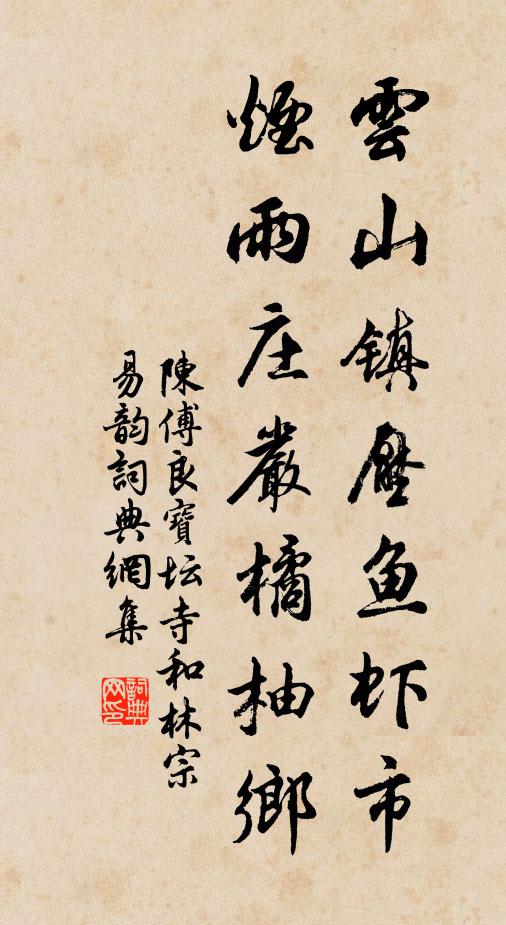 雲山鎮壓鱼虾市
煙雨庄嚴橘柚鄉
陳傅良寶坛寺和林宗
易韵詞典網集
詞典网印